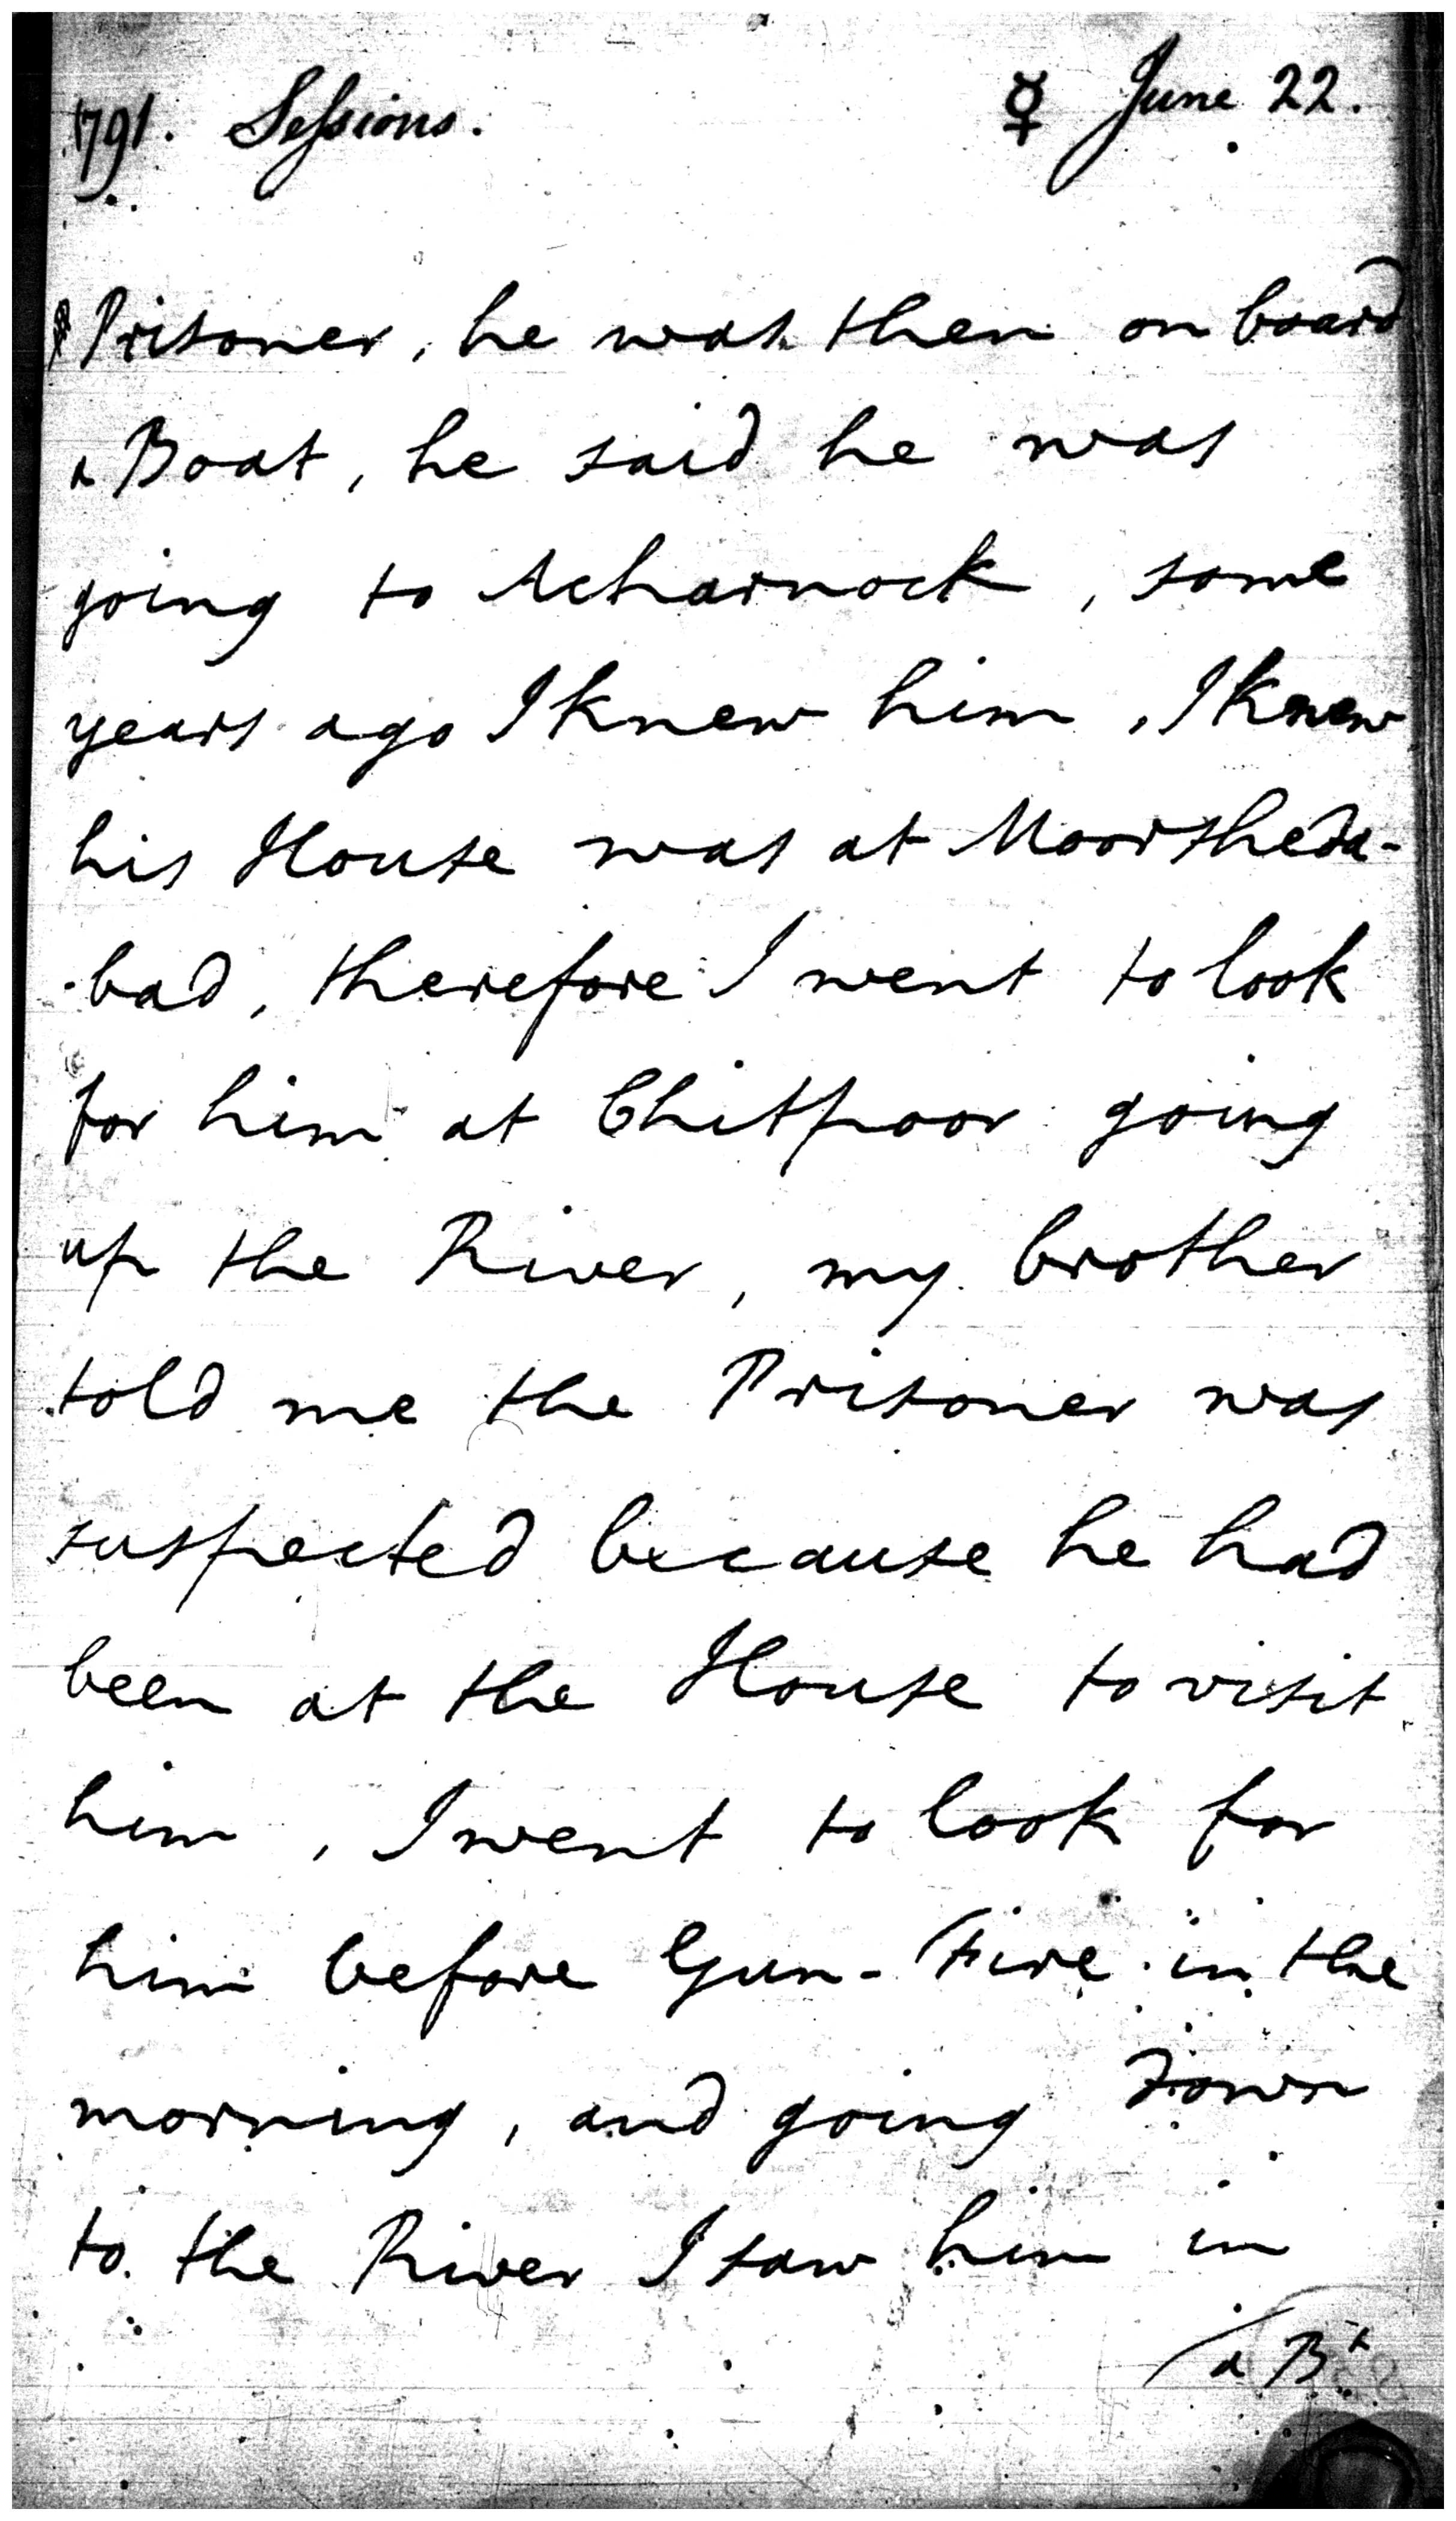 1791. Sessions. ☿ June 22.
Prisoner, he was then on board
a Boat, he said he was
going to Acharnock, some
years ago I knew him, I knew
his House was at Moorsheda-
-bad, therefore I went to look
for him at Chitpoor going
up the River, my brother
told me the Prisoner was
suspected because he had
been at the House to visit
him, I went to look for
him before Gun-Fire in the
morning, and going down
to the River I saw him in
a Bt